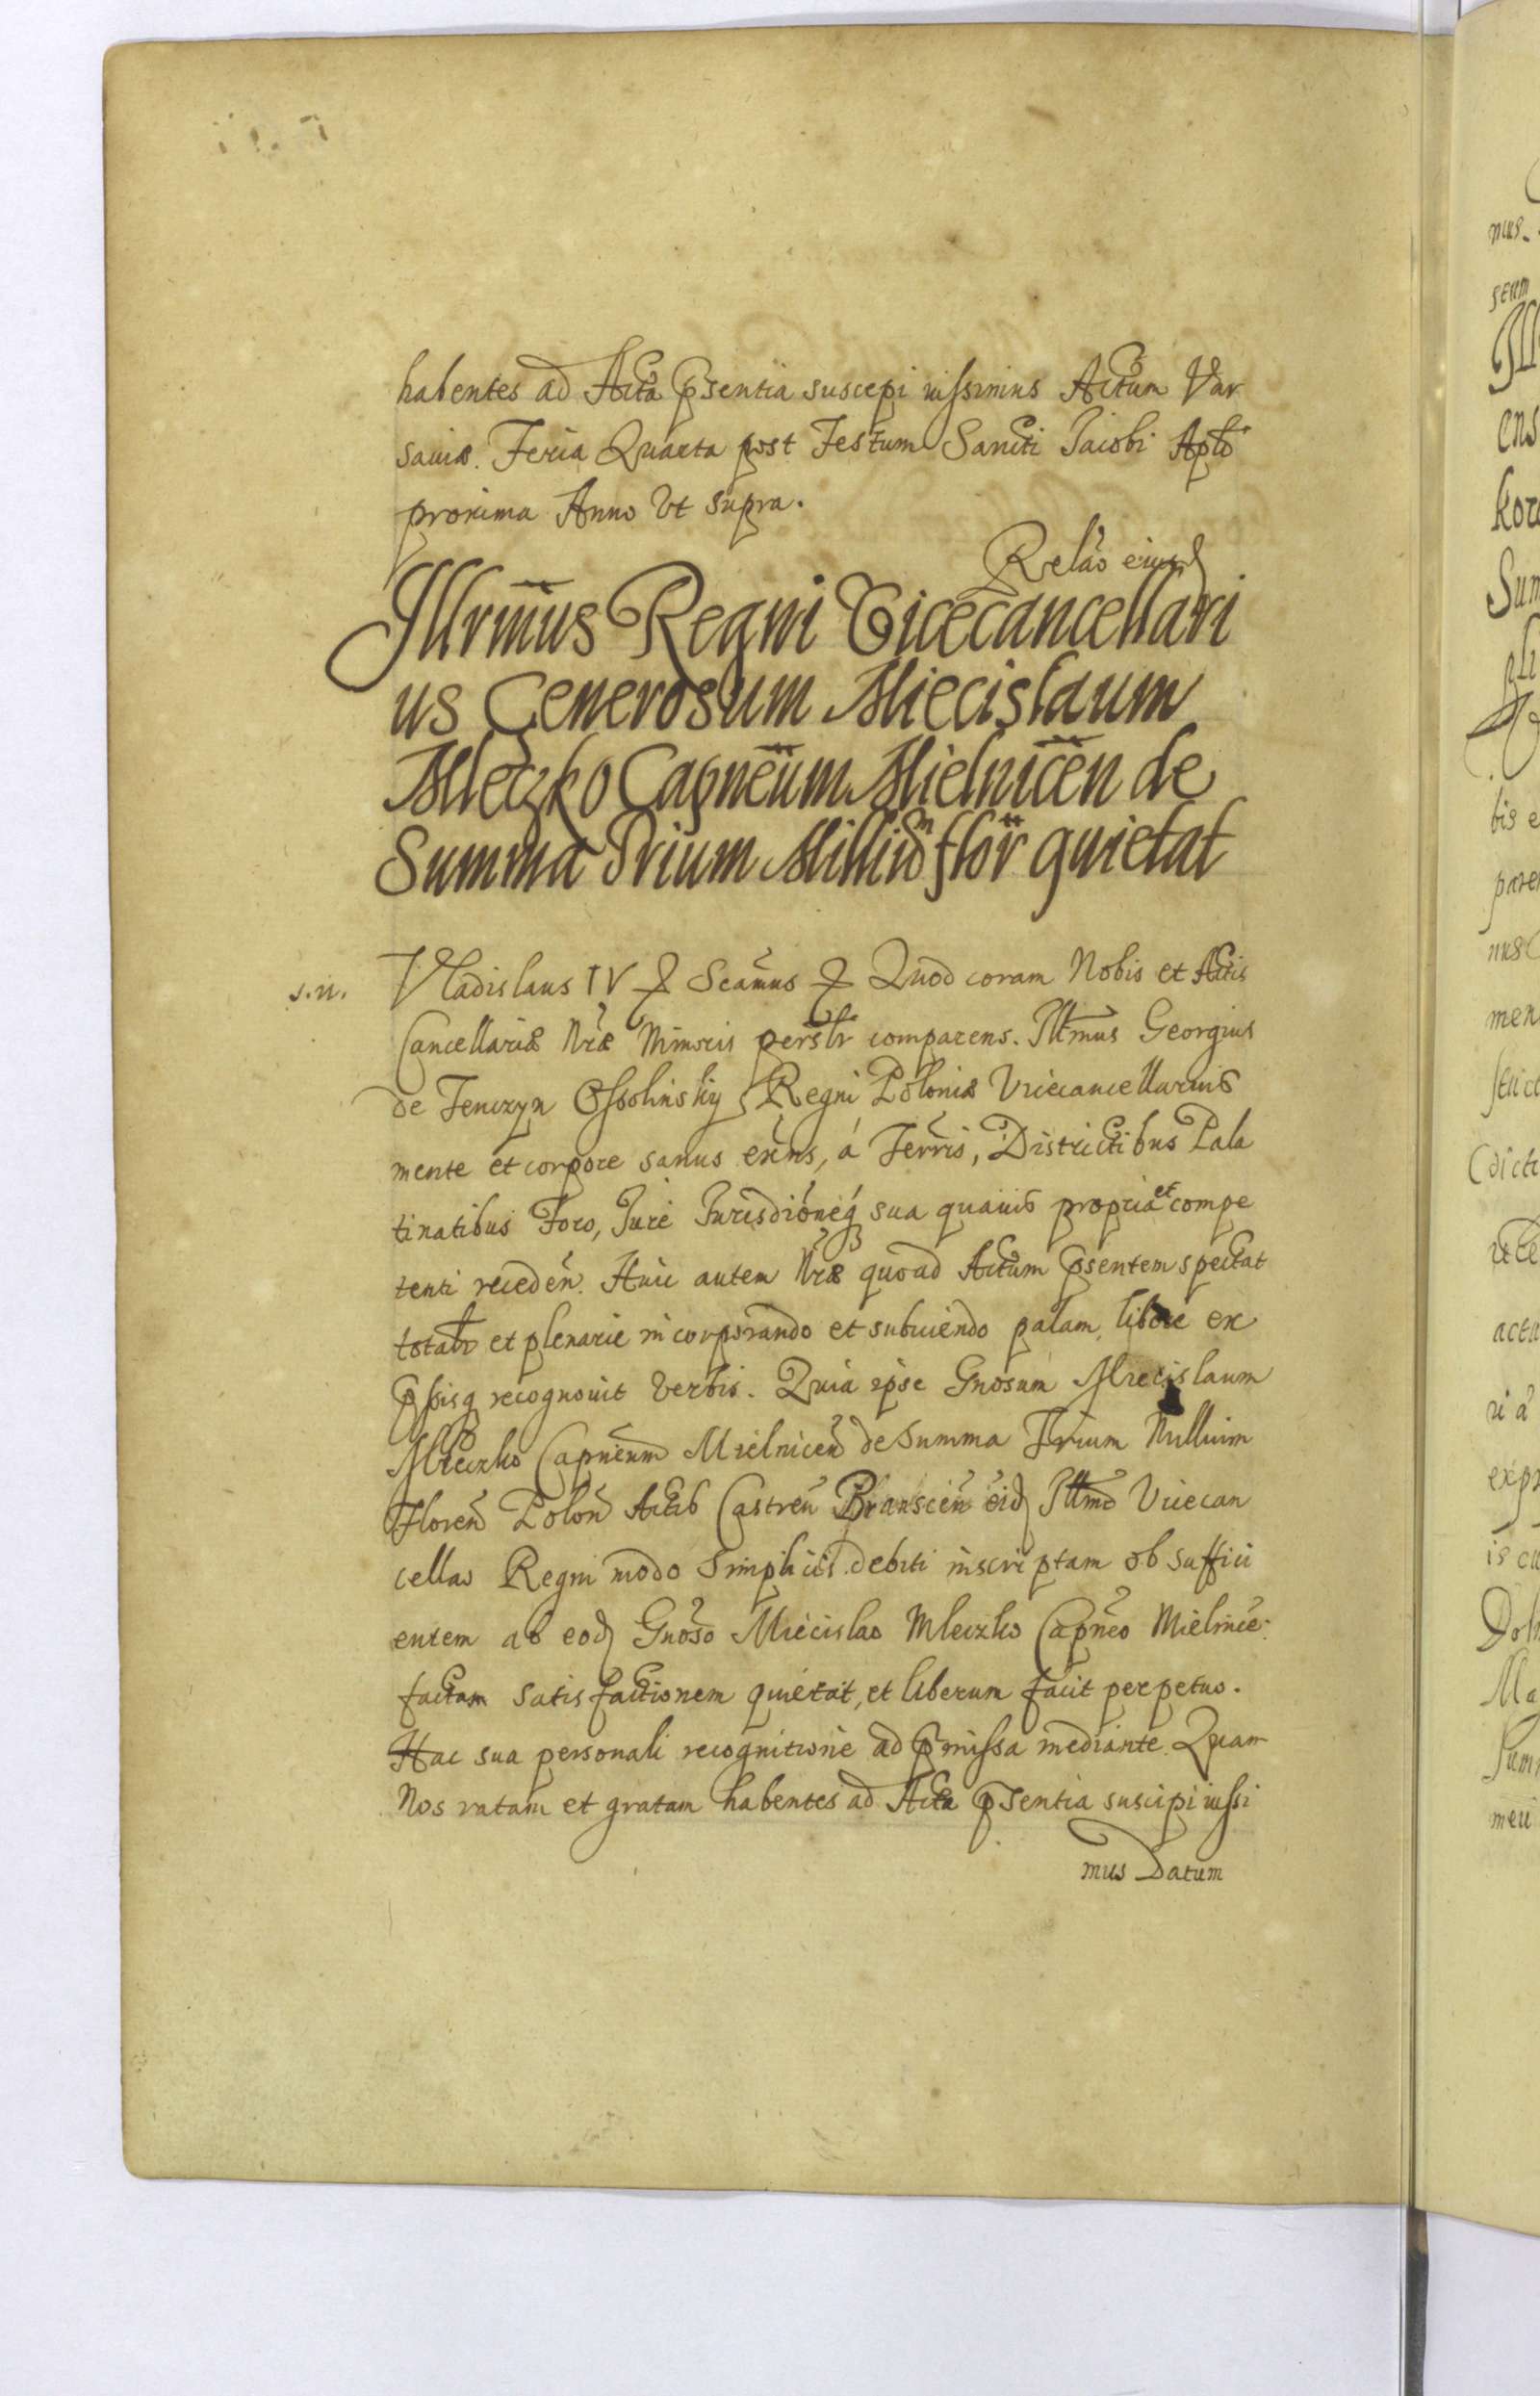 habentes ad Acta p̃sentia suscepi iussimus Actum Var
saviæ. Feria Quarta post Festum Sancti Jacobi Apli
proxima Anno Vt supra.
Relao eiusd
Illrm̃us Regni Vicecancellari
us Generosum Miecislaum
Mleczko Capnẽum Mielnicen̄ de
Summa Trium Milliũ flor̃ quietat
s.n.
Vladislaus IV & Scam̃us & Quod coram Nobis et Actis
Cancellariæ Nr̃æ Minoris persłr comparens. Illmus Georgius
de Tenczyn Ossolinsky Regni Poloniæ Vicecancellarius
mente et corpore sanus ex̃ns, á Terris, Districtibus Pala
tinatibus Foro, Jure Jurisdióneq́ sua quavis propria et compe
tenti receden̄. Huic autem Nr̃æ quoad Actum p̃sentem spectat
totalr et plenarie incorporando et subiiciendo palam, libere ex
p̃ssisq recognovit Verbis. Quia ipse Gnosum Miecislaum
Mleczko Capneum Mielnicen̄ de Summa Trium Millium
Floren̄ Polon̄ Actis Castren̄ Branscien̄ eid Illmo Vicecan
cellao Regni modo Simplicis debiti inscriptam ob suffici
entem ab eod Gnoso Miecislao Mleczko Capneo Mielnice.
factam satisfactionem quietat, et liberum facit perpetuo.
Hac sua personali recognitione ad p̃missa mediante. Quam
Nos ratam et gratam habentes ad Acta p̃sentia suscipi iussi
mus Datum